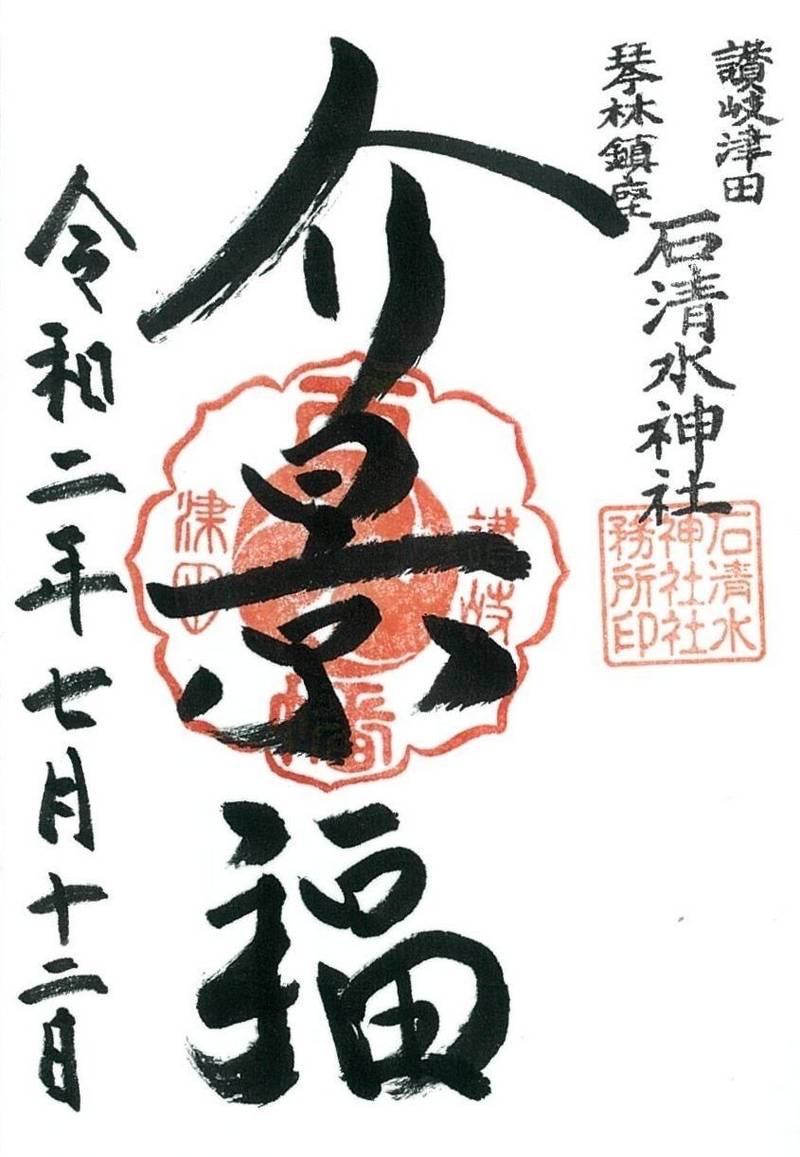 讃岐津田
琴林鎮座
石清水神社
石清水
神社社
務所印
介景福
讃岐
津田
八幡
令和二年七月十二日